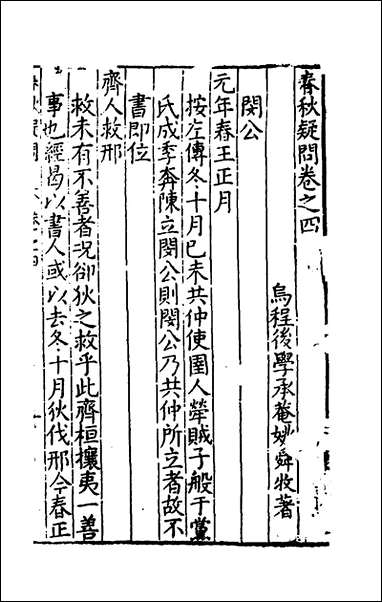 春秋疑問卷之四
烏程後學承菴姚舜牧著
閔公
元年春王正月
按左傳冬十月己未共仲使圉人犖賊子般于黨
氏成季奔陳立閔公則閔公乃共仲所立者故不
書即位
齊人救邢
救未有不善者況卻狄之救乎此齊桓攘夷一善
事也經曷以書人或以去冬十月狄伐邢今春正